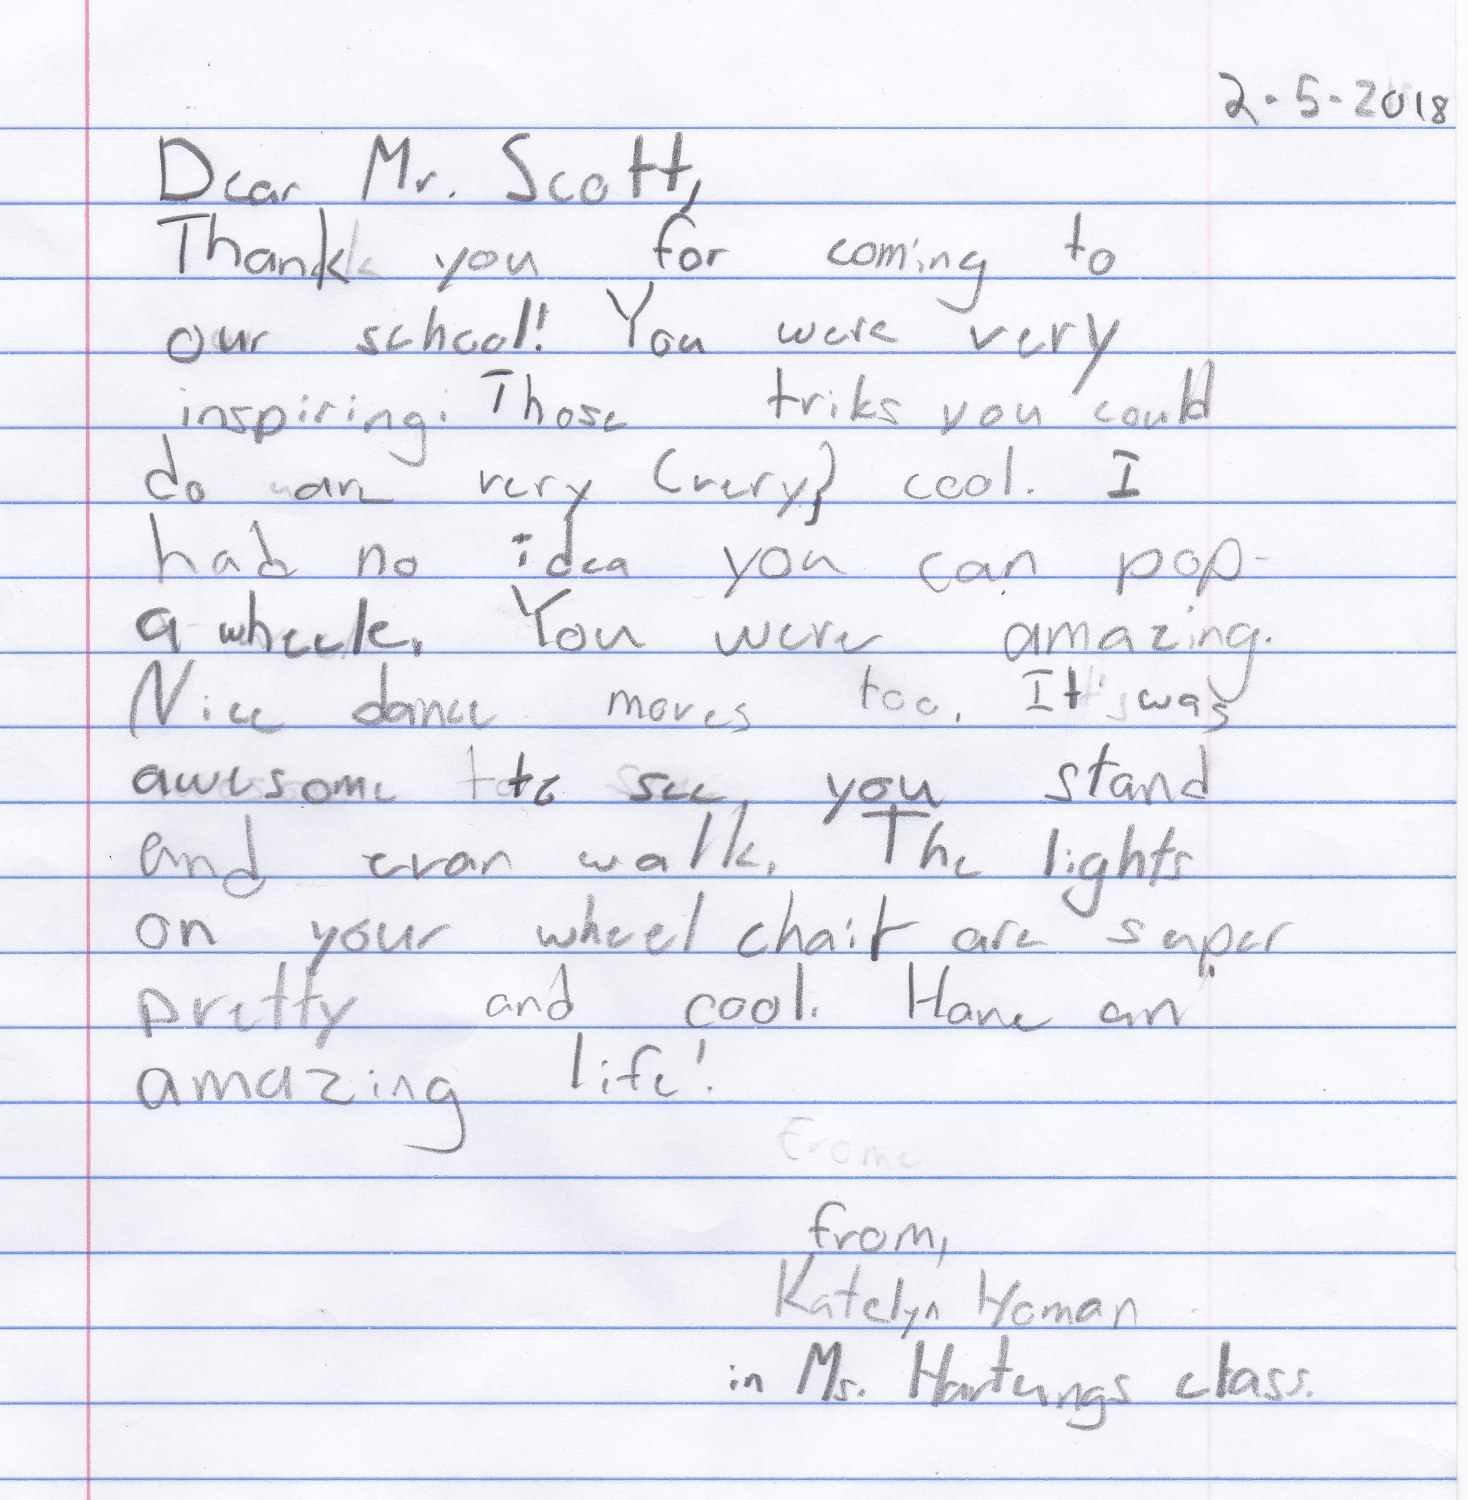 2-5-2018
Dear Mr. Scott,
Thank you for coming to
our school! You were very
inspiring. Those triks you could
do are very (very) cool. I
had no idea you can pop-
a-wheele. You were amazing.
Nice dance moves too. It was
awesome to see you stand
and evan walk. The lights
on your wheel chair are super
pretty and cool. Have an
amazing life!
from,
Katelyn Homan
in Ms. Hartungs class.